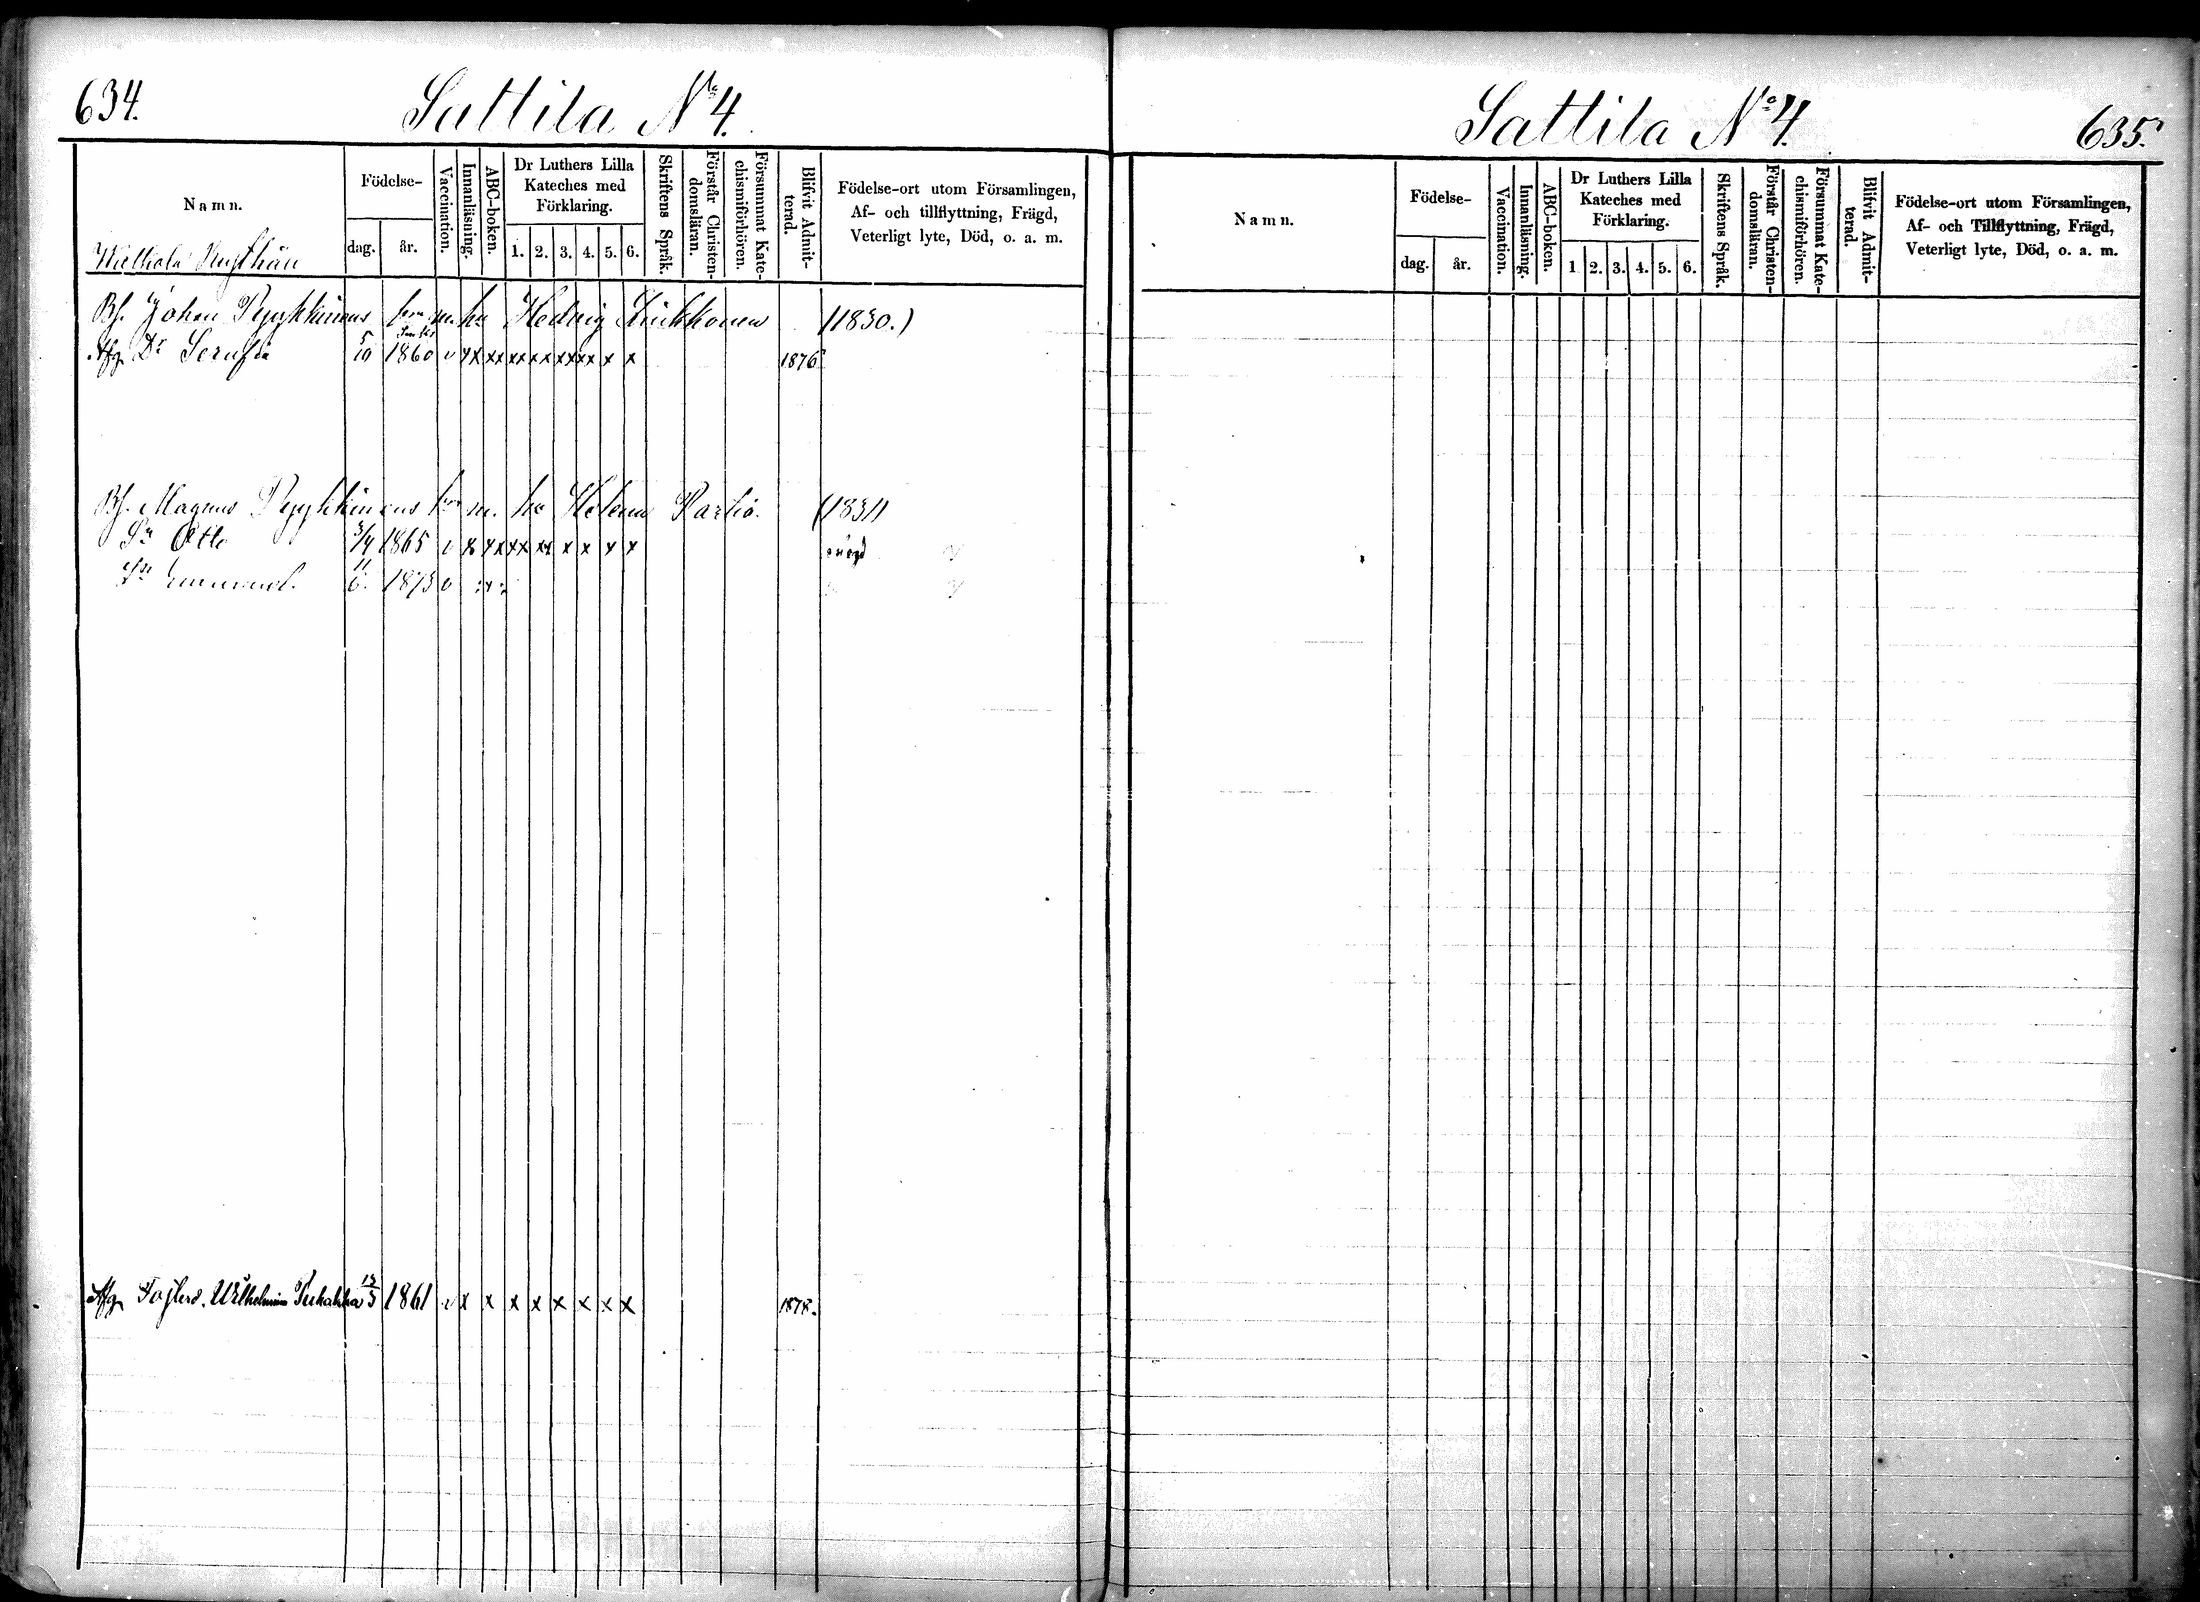 634.
Sattila No 4.
Namn.
Födelse-
dag.
år.
Vaccination.
Innanläsning.
ABC-boken.
Dr Luthers Lilla
Kateches med
Förklaring.
1. 2. 3. 4. 5. 6.
Skriftens Språk.
Förstår Christen-
domsläran.
Försummat Kate-
chismiförhören.
Blifvit Admit-
terad.
Födelse-ort utom Församlingen,
Af- och tillflyttning, Frägd,
Veterligt lyte, Död, o. a. m.
Bf. Johan Pyykkinens m. h. Hedvig (1830.)
Afg. Dr Serafia 5/10 1860 v xx xx xx xx xx xx x x 1876
Bf. Magnus Pyykkinens m. h. Helena Partio. (1831)
Sn Otto 3/4 1865 v x xx xx xx x x x x
Sn 11/6. 1873 v
Afg. Wilhelmina 13/5 1861 v x x x x x x x x 1878.
Sattila No 4.
635.
Namn.
Födelse-
dag.
år.
Vaccination.
Innanläsning.
ABC-boken.
Dr Luthers Lilla
Kateches med
Förklaring.
1 2. 3. 4. 5. 6.
Skriftens Språk.
Förstår Christen-
domsläran.
Försummat Kate-
chismiförhören.
Blifvit Admit-
terad.
Födelse-ort utom Församlingen,
Af- och Tillflyttning, Frägd,
Veterligt lyte, Död, o. a. m.